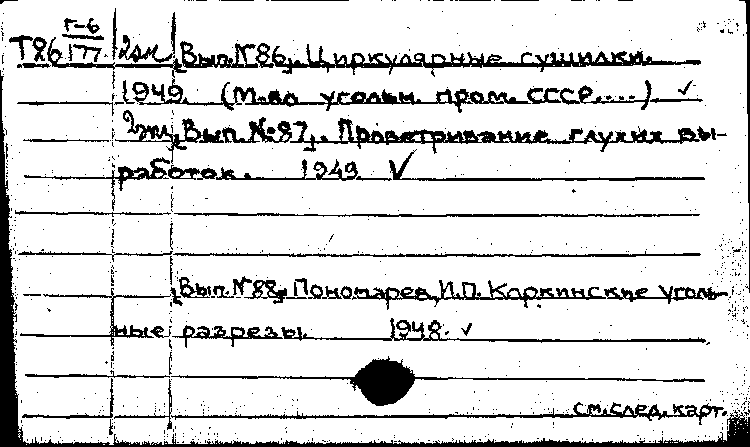 Г-6
Т86 177 2эк [Вып. № 86]. Циркулярные сушилки.
1949. (М-во угольн. пром. СССР....) ✓
2эк [Вып. № 87]. Проветривание глухих вы-
работок. 1949. ✓
[Вып. № 88]. Пономарев, И.П. Коркинские уголь-
ные разрезы. 1948. ✓
см. след. карт.